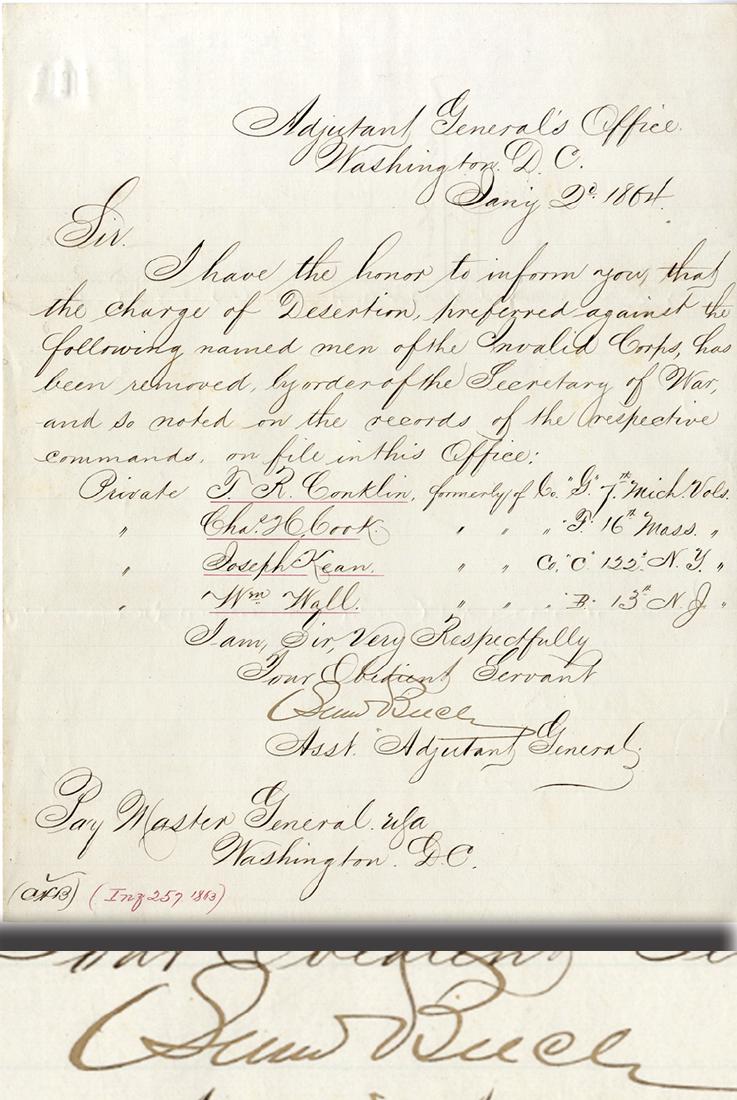 Adjutant General's Office
Washington D.C.
Jan'y 2d 1864.
Sir.
I have the honor to inform you, that
the charge of Desertion, preferred against the
following named men of the Invalid Corps, has
been removed, by order of the Secretary of War,
and so noted on the records of the respective
commands, on file in this Office:
Private T. R. Conklin, formerly of Co. "G" 7th Mich. Vols.
" Chas. H. Cook. " " " F. 16th Mass. "
" Joseph Kean. " " Co. "C" 122d N.Y. "
" Wm Wall. " " " B. 13th N.J. "
I am, Sir, Very Respectfully
Your Obedient Servant
Saml Breck
Asst. Adjutant General.
Pay Master General. usa
Washington. D.C.
(Inz 257 1863)
Your Obedient Se
Saml Breck